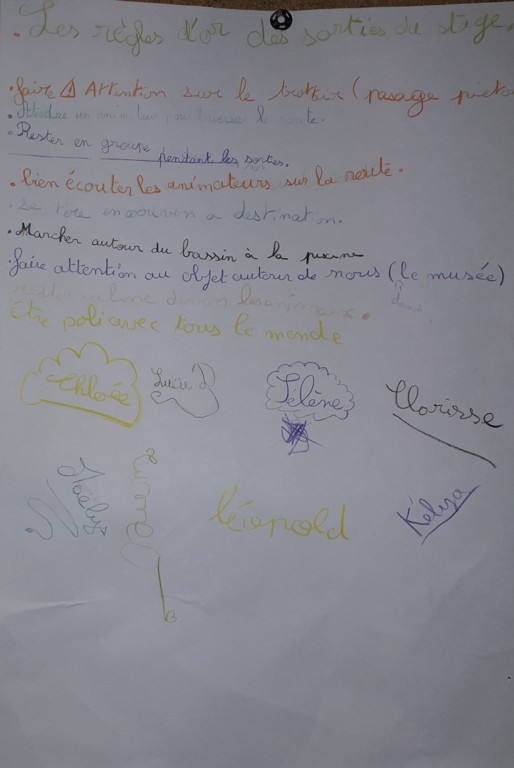 . Les règles d'or des sorties du stage.
. faire ⚠ Attention sur le trottoir (pasage piéto
. Atendre un animateur pour traverser la route.
. Rester en groupe pendant les sorties.
. bien écouter les animateurs sur la route.
. Se tenir a destination.
. Marcher autour du bassin à la piscine
. faire attention au objet autour de nous (le musée)
dans
même si on
être poli avec tous le monde
Chloée Lucie Sélène Clarisse
Maëlys léopold Kélya